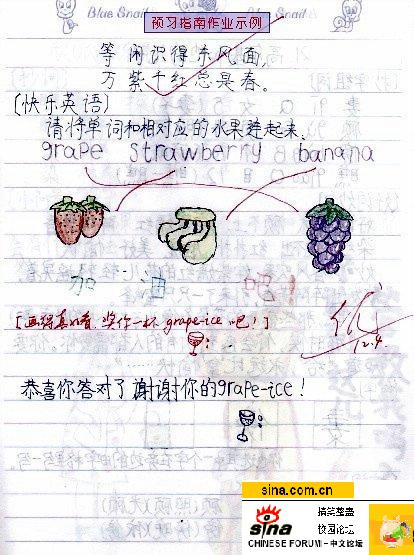 Blue Snail
Blue Snail
预习指南作业示例
等闲识得东风面,
万紫千红总是春。
(快乐英语)
请将单词和相对应的水果连起来.
grape strawberry banana
加 油 吧!
[画得真好看,奖你一杯 grape-ice 吧!]
优
12.4.
恭喜你答对了谢谢你的grape-ice!
sina.com.cn
sina
搞笑整蛊
校园论坛
CHINESE FORUM-中文论坛